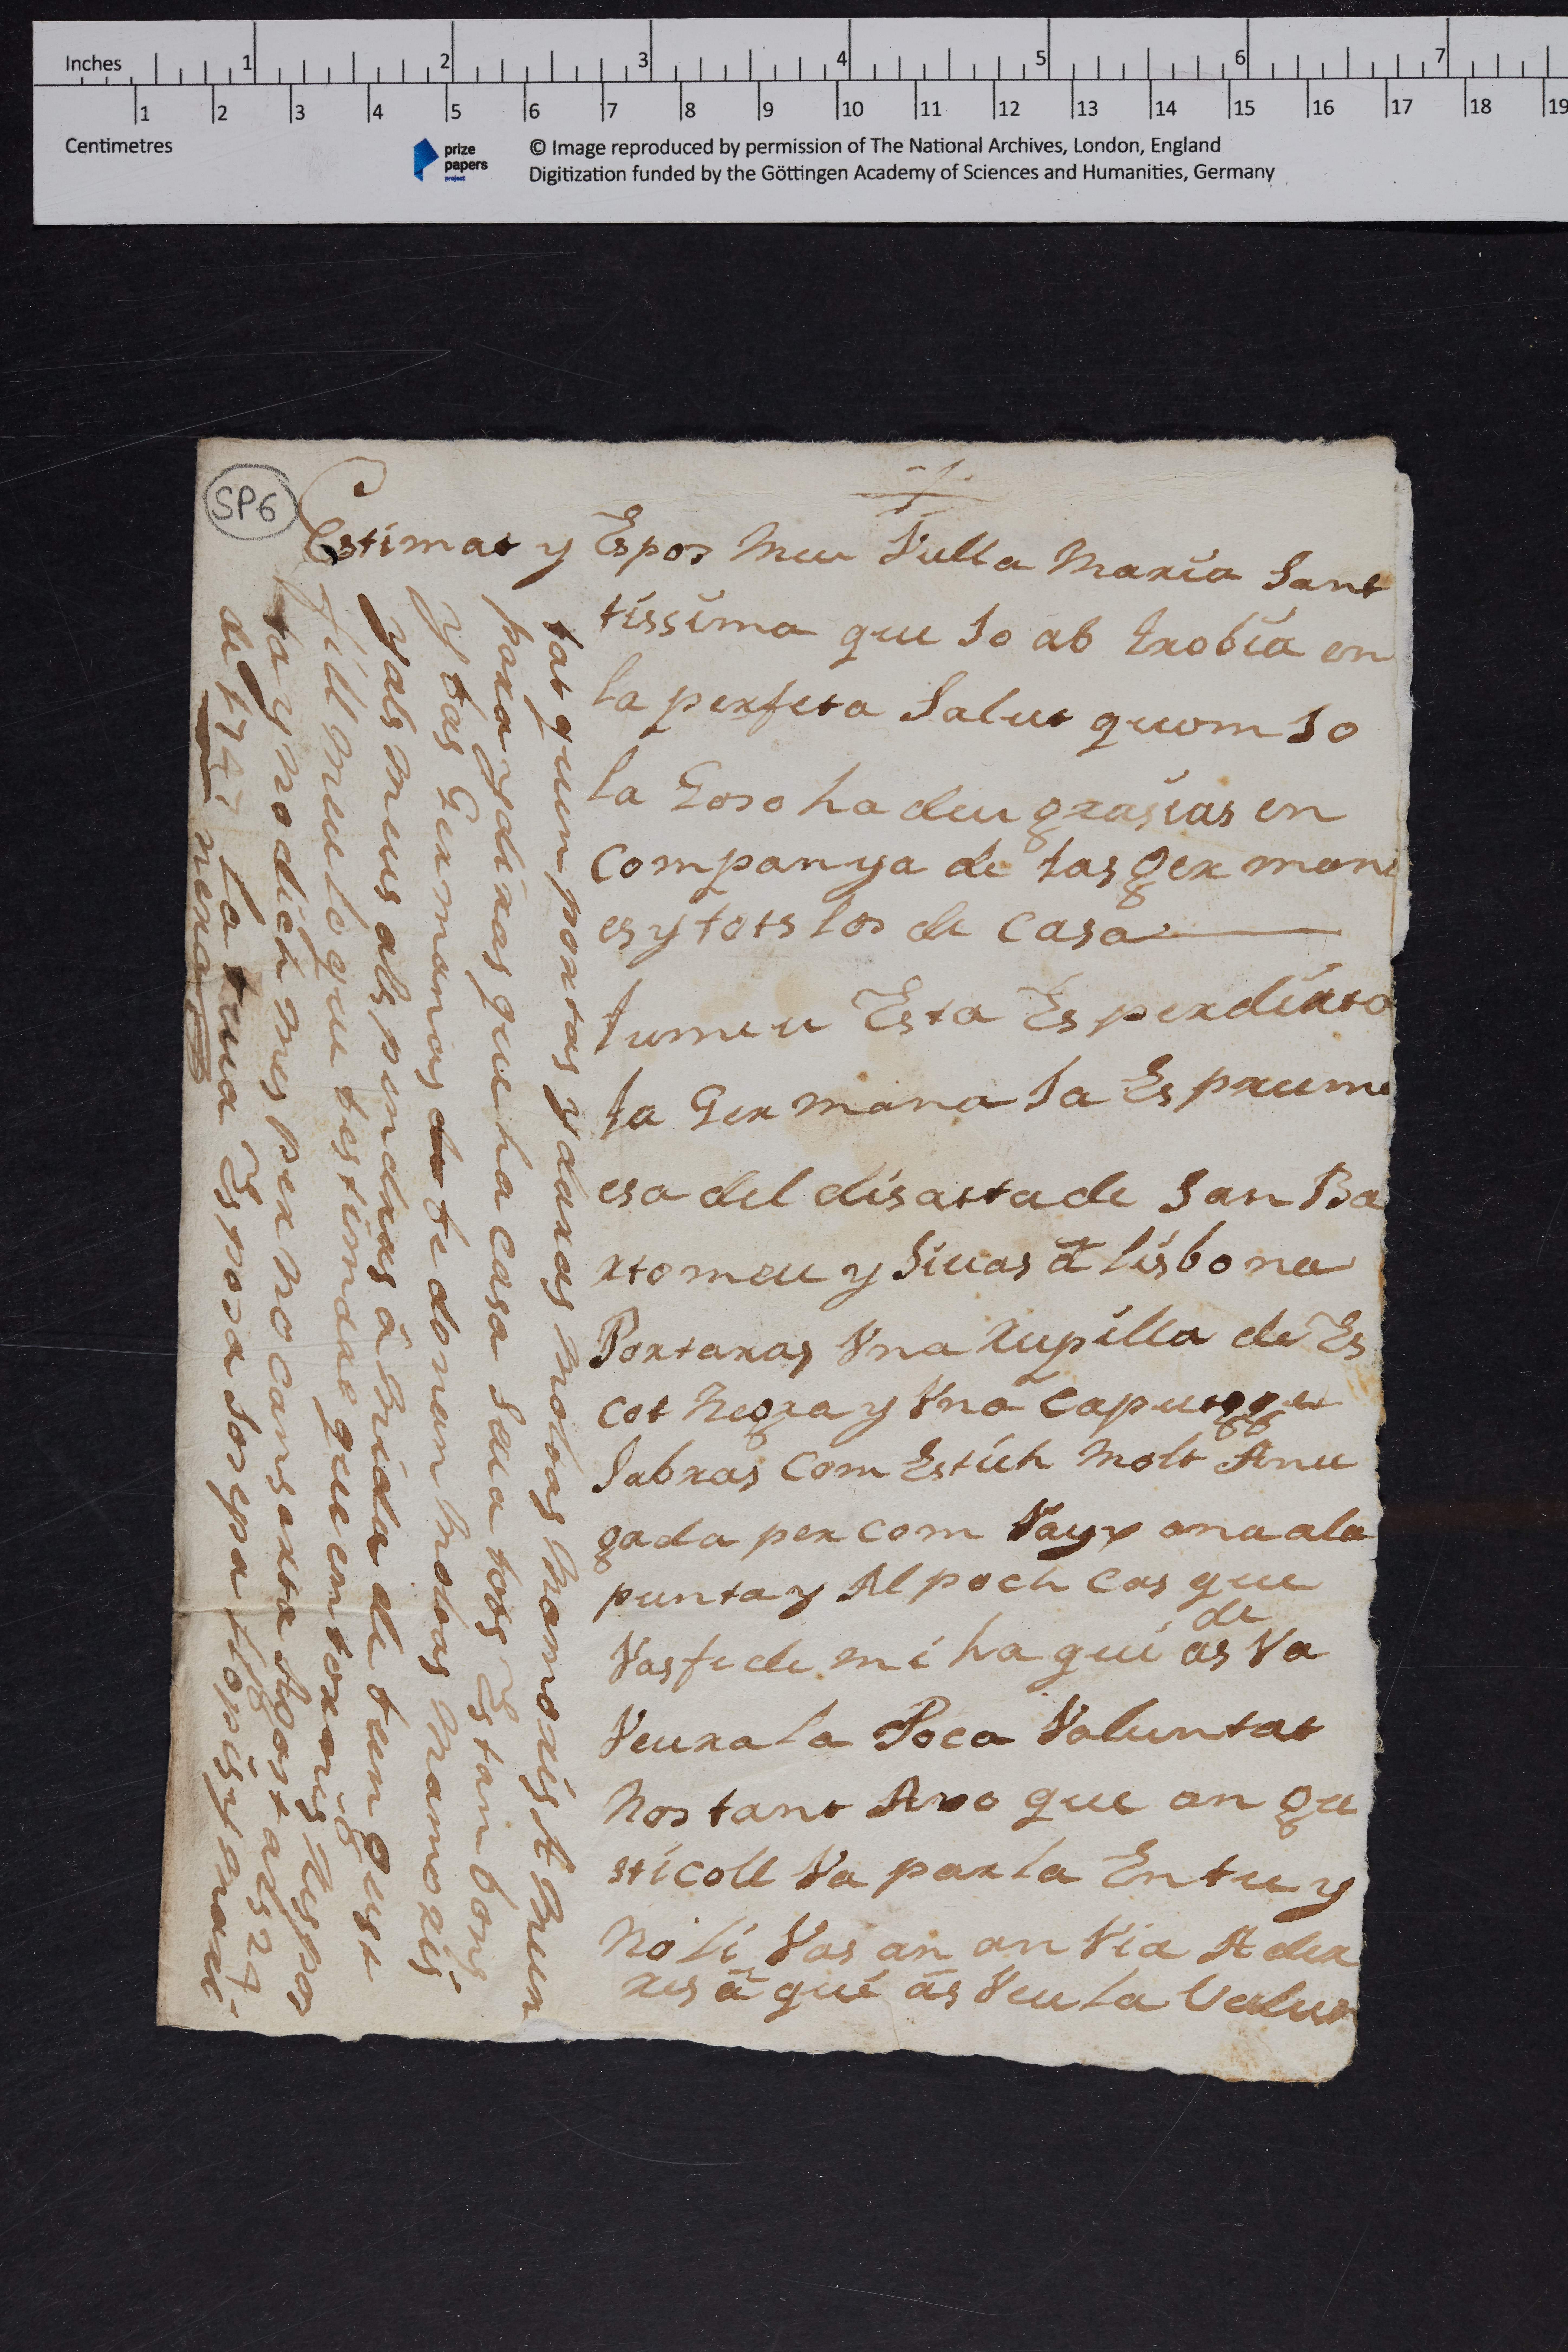 Inches 1 2 3 4 5 6 7
1 2 3 4 5 6 7 8 9 10 11 12 13 14 15 16 17 18 19
Centimetres
prize papers project
© Image reproduced by permission of The National Archives, London, England
Digitization funded by the Göttingen Academy of Sciences and Humanities, Germany
SP6
Estimat y Espos Meu Vulla Maria Sant
tissima que so ab trobia en
la perfeta Salut quom Jo
la Goso ha deu grasias en
companya de tas germani
es y tots los de casa
lumeu Esta Es per dirta
la Germana Sa Es prume
esa del disasta de San Ba
rtomeu y Sivas â lisbona
Portaras Vna Xupilla de Es
cot Negra y Vna
Sabras com Estich Molt Anu
gada per com Vay ana ala
punta y Al poch cas que
Vas fe de mi ha qui as de Va
Veura la Poca Voluntat
Nos tant Avo que an ga
sticoll Va parla En tu y
No li Vas an an Via A der
res â qui âs Veu la Valun
tat quem portas y daras Molas Mamoris A Meu
para y diras que ha casa Sua tots Estan bons
y tas Germanas te donan Molas Mamoris
y als meus als pendras â Brida de tum gust
fill Meu lo que testimare que em toxaris Respos
ta y No dich mes per No cansarta Agost als 24
de 1747 La tua Esposa Josepa llopis y mari
nera